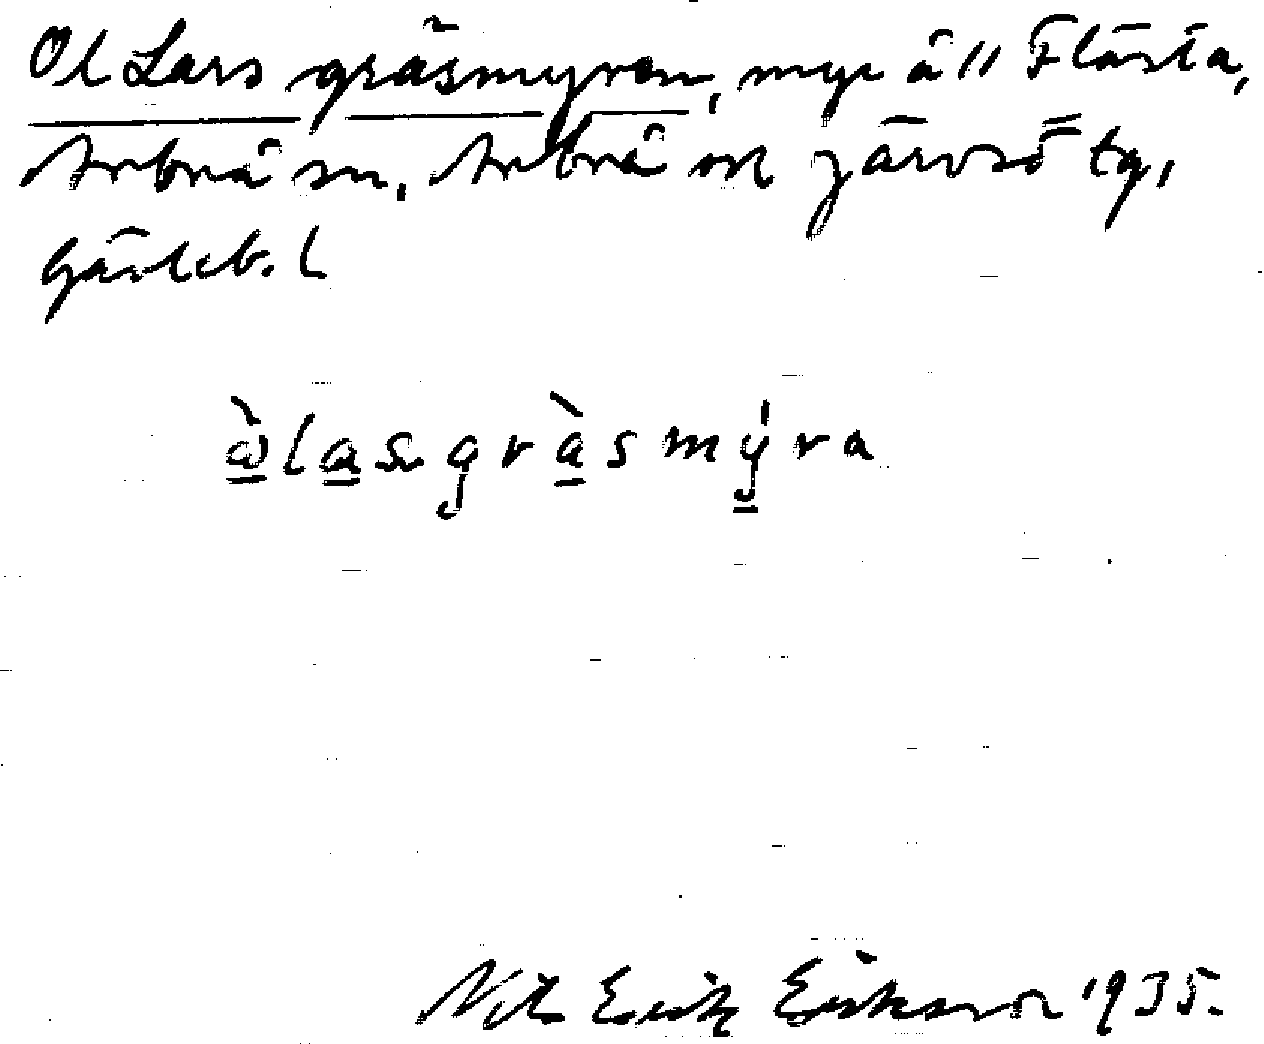 Ol Lars gräsmyran, myr å " Flästa,
Arbrå sn, Arbrå o Järvsö tg,
Gävleb. L
òlasgràsmýra
Nils Erik Eriksson 1935.